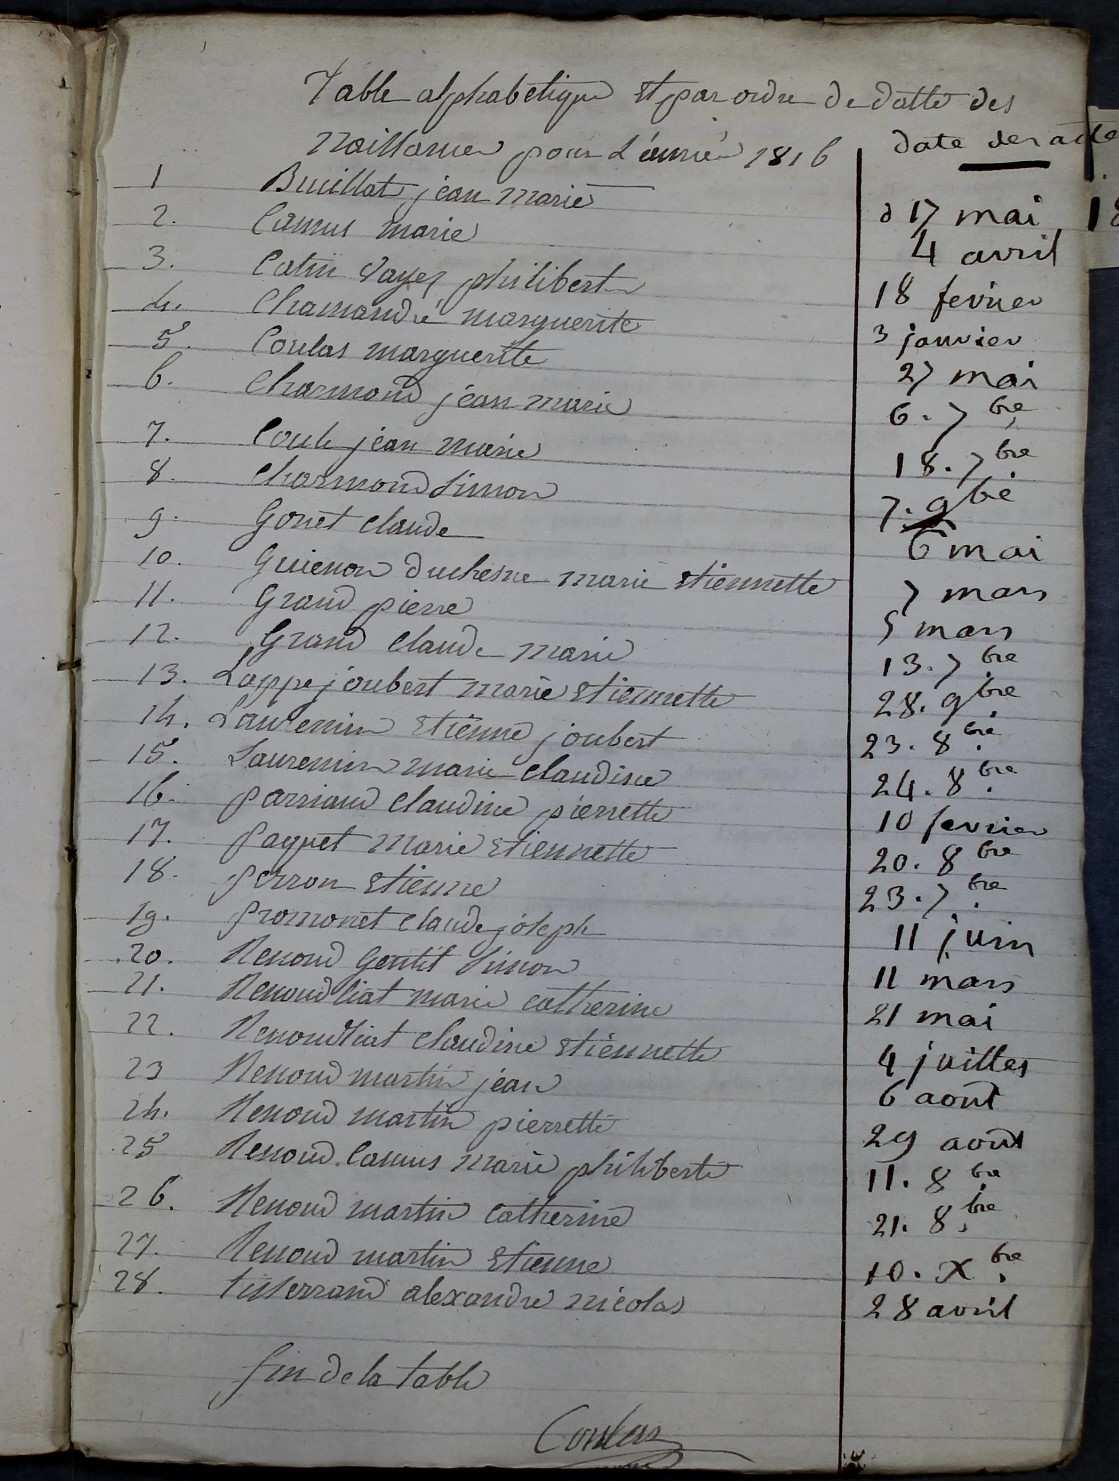 Table alphabetique et par ordre de datte des
Naissances pour L'année 1816 date des acte
1 Buillat jean marie d 17 mai
2. Camus marie 4 avril
3. Catin Vayer philibert 18 fevrier
4. Chamandré marguerite 3 janvier
5. Coulas marguerite 27 mai
6. Charmond jean marie 6. 7bre
7. Coule jean marie 18. 7bre
8. Charmond Simon 7. 9bre
9. Gonet Claude 6 mai
10. Guienon duchesne marie Etiennette 7 mars
11. Grand pierre 5 mars
12. Grand Claude marie 13. 7bre
13. Lappe joubert marie Etiennette 28. 9bre
14. Laurencin Etienne joubert 23. 8bre
15. Laurencin marie Claudine 24. 8bre
16. parriaud Claudine pierrette 10 fevrier
17. paquet Marie Etiennette 20. 8bre
18. perron Etienne 23. 7bre
19. promonet Claude joseph 11 juin
20. Renoud Gentit Simon 11 mars
21. Renoud liat marie catherine 21 mai
22. Renoud liat Claudine Etiennette 4 juillet
23 Renoud martin jean 6 aout
24. Renoud martin pierrette 29 aout
25 Renoud Camus Marie philiberte 11. 8bre
26. Renoud martin Catherine 21. 8bre
27. Renoud martin Etienne 10. Xbre
28. tisserrand alexandre nicolas 28 avril
fin de la table
Coulas